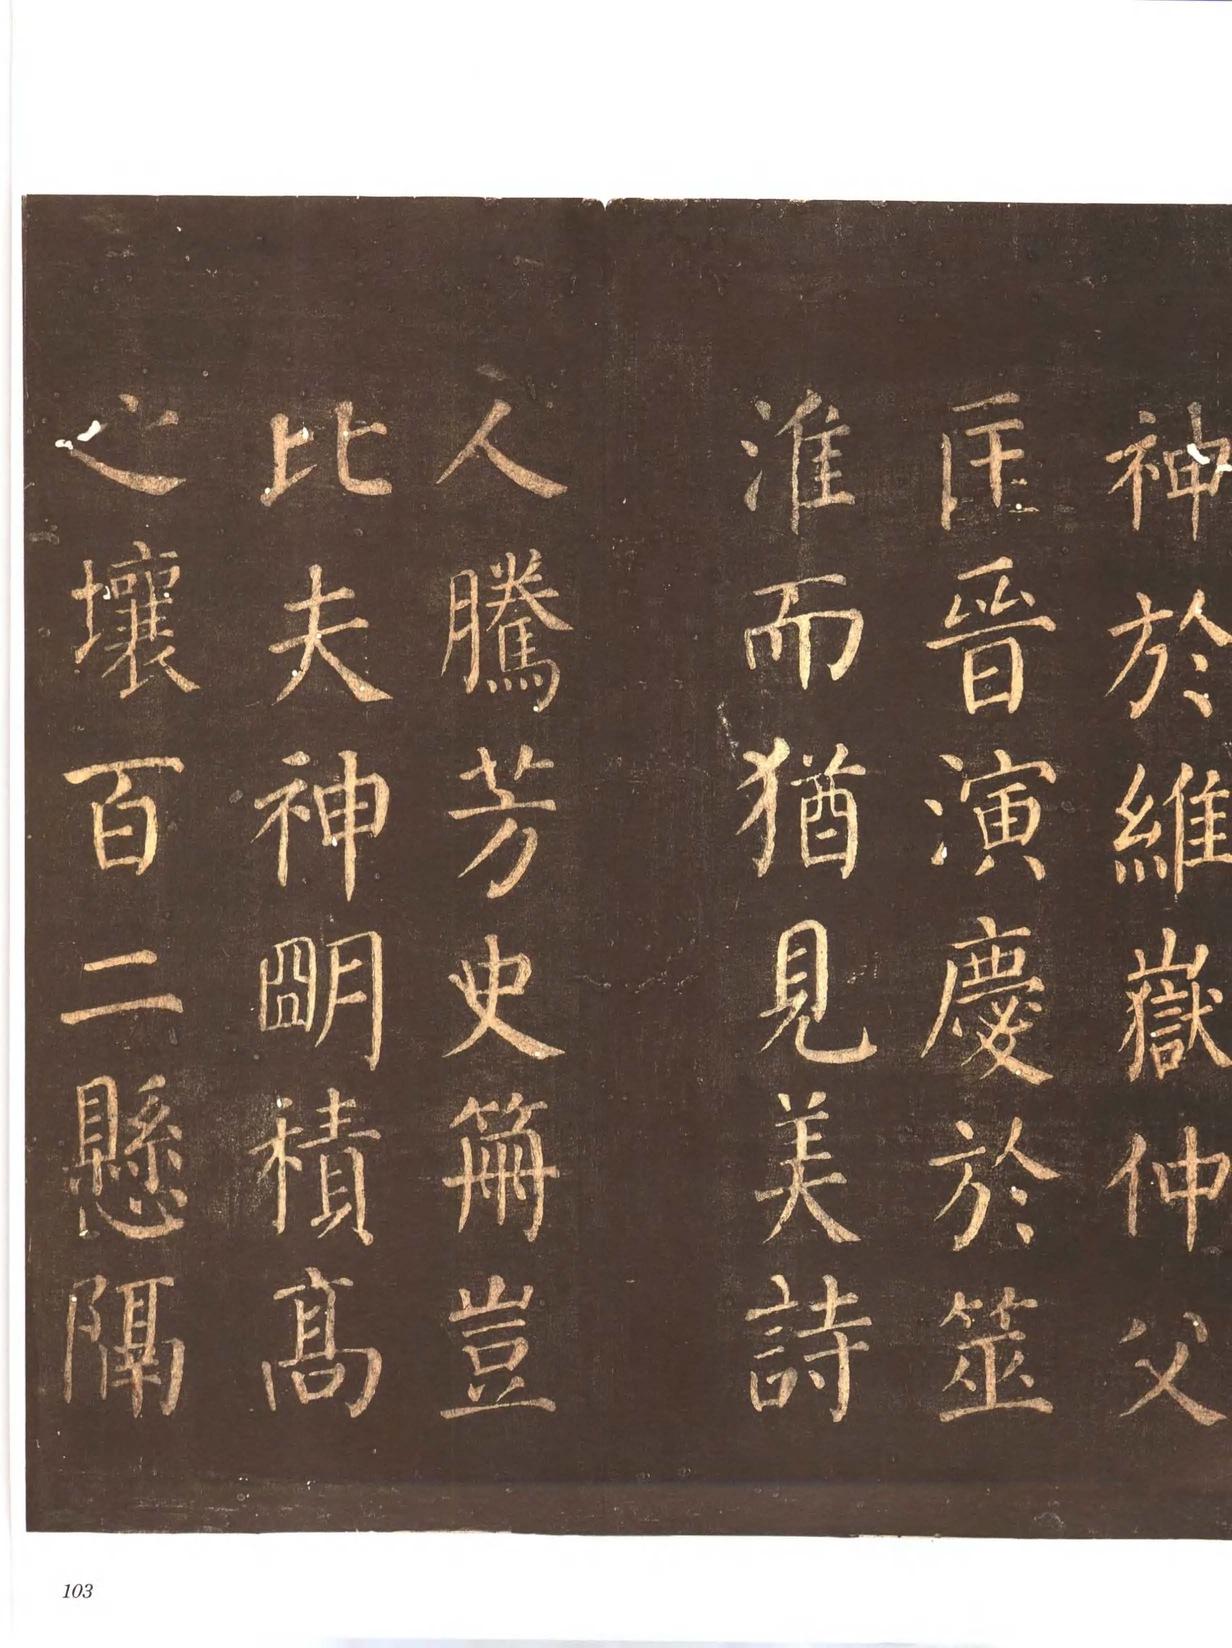 神於維嶽仲父
匡晉演慶於筮
淮而猶見美詩
人騰芳史笧豈
比夫神朙積髙
之壤百二懸隔
103